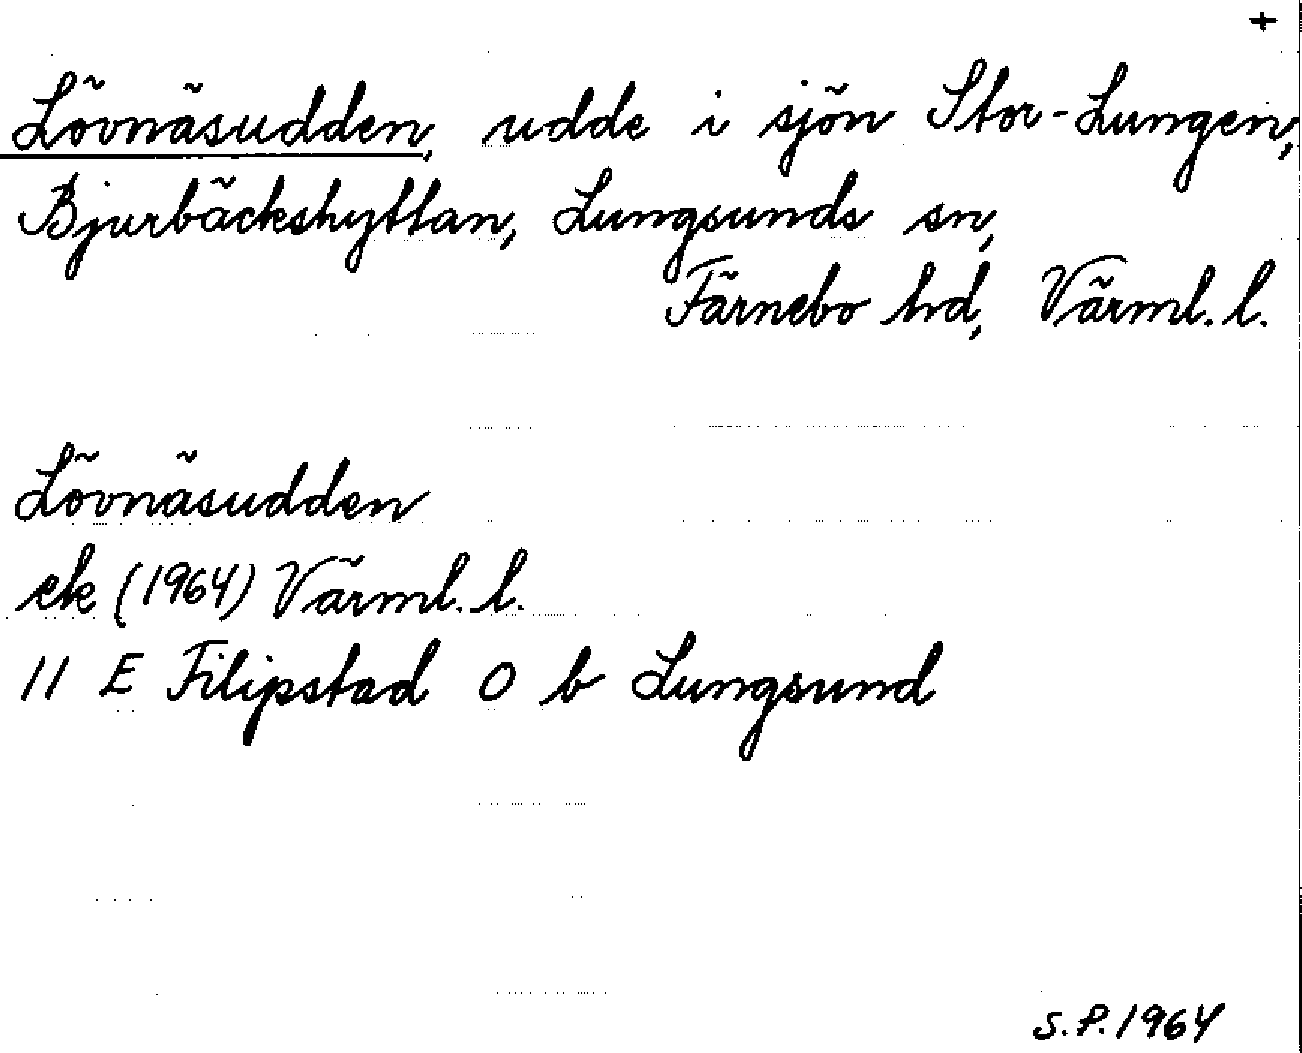 +
Lövnäsudden, udde i sjön Stor-Lungen,
Bjurbäckshyttan, Lungsunds sn,
Färnebo hd, Värml. l.
Lövnäsudden
ek (1964) Värml. l.
11 E Filipstad O b Lungsund
S.P. 1964